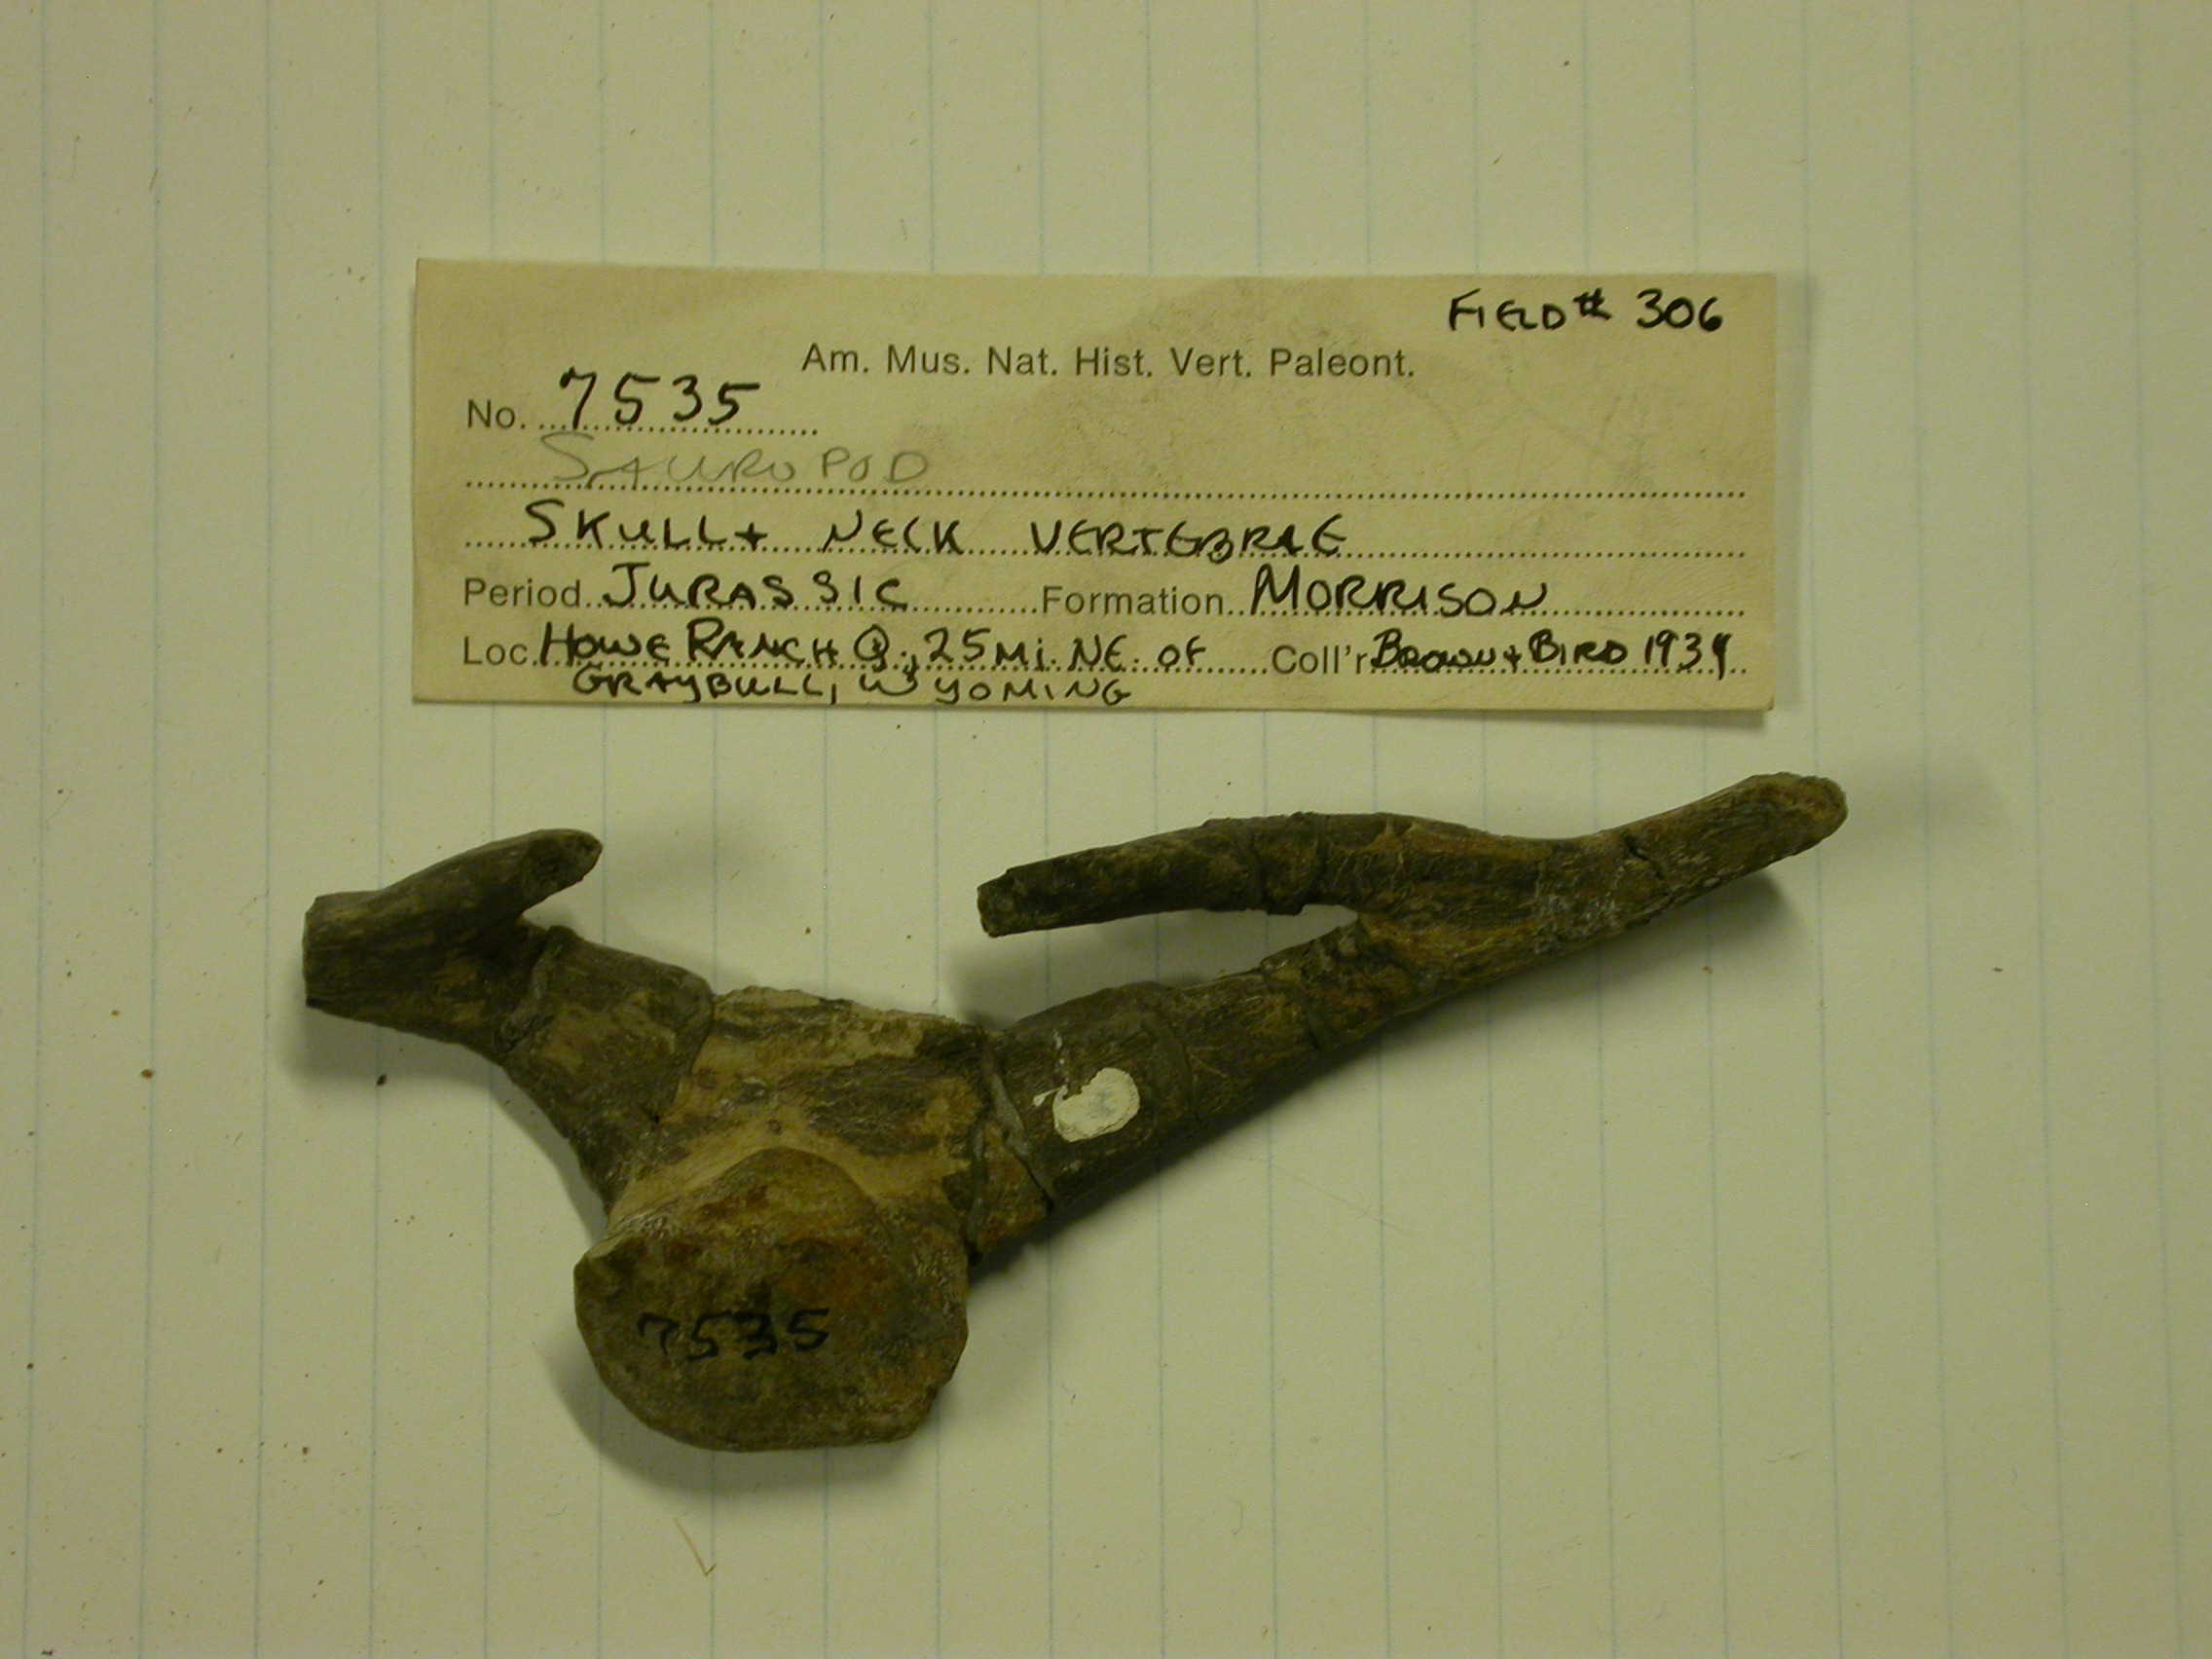 FIELD # 306
Am. Mus. Nat. Hist. Vert. Paleont.
No. 7535
SAUROPOD
SKULL + NECK VERTEBRAE
Period JURASSIC Formation MORRISON
Loc. HOWE RANCH Q., 25 MI. NE. OF Coll'r BROWN + BIRD 1934
GRAYBULL, WYOMING
7535